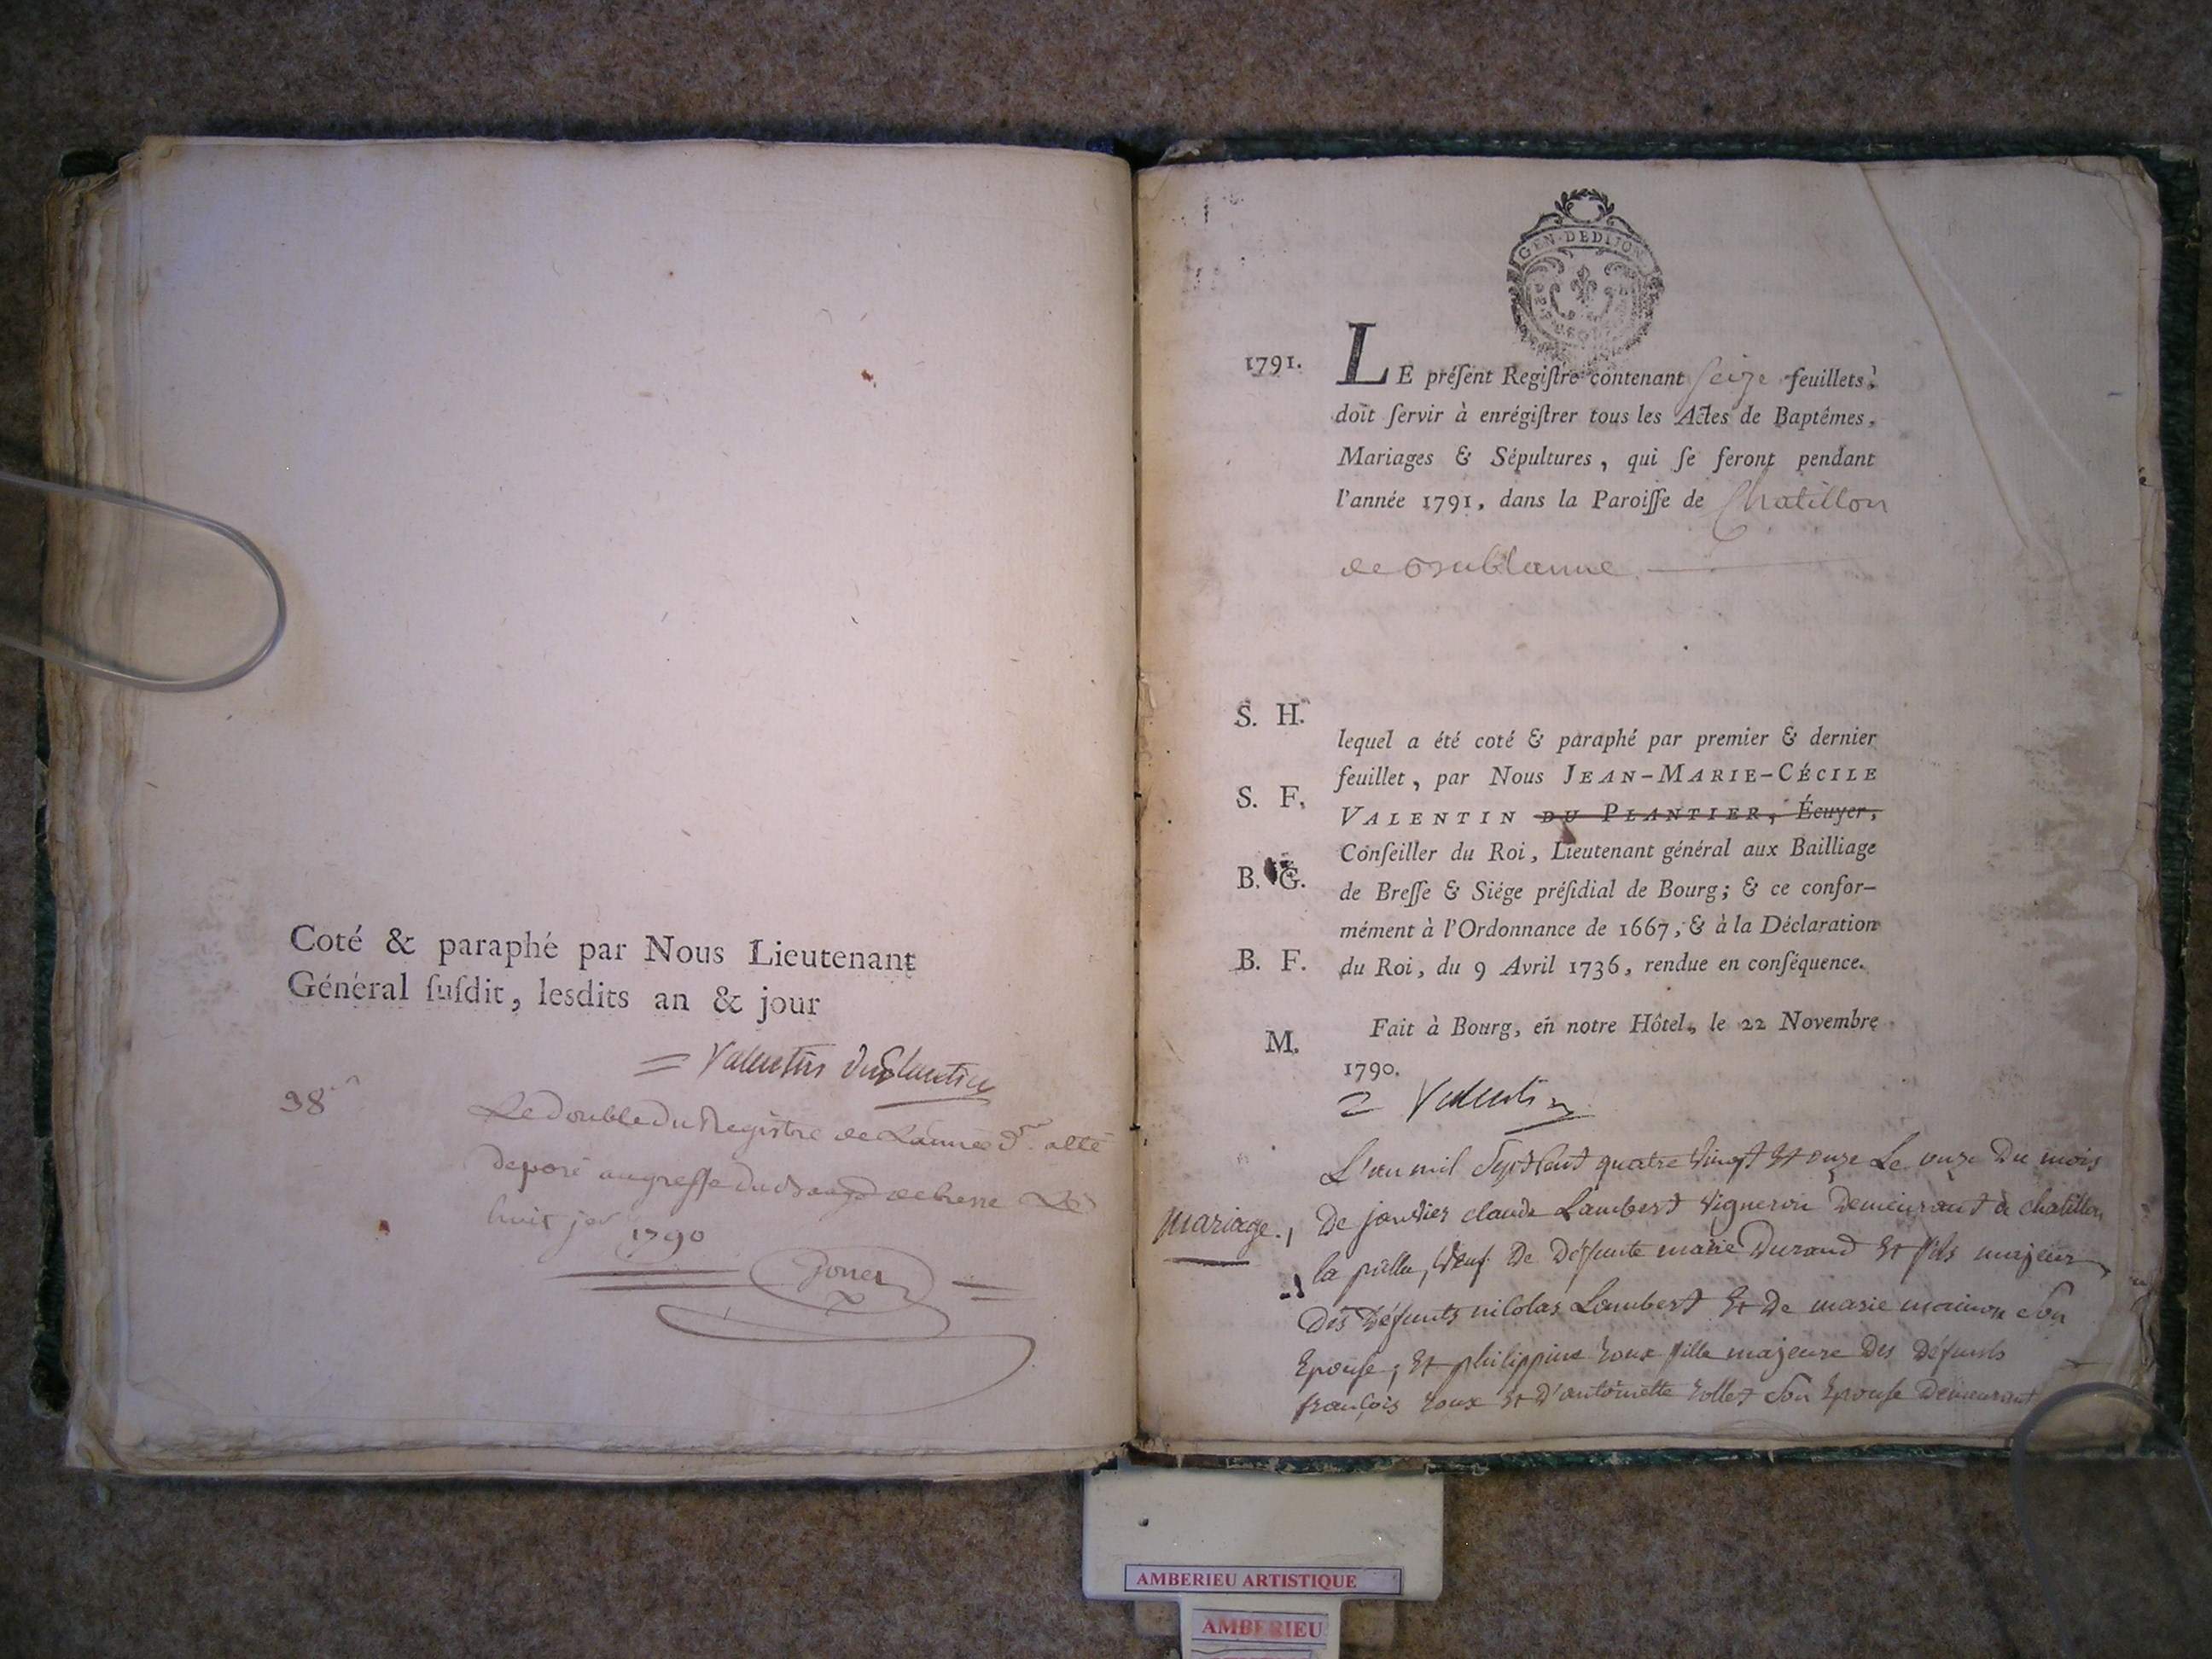 Coté & paraphé par Nous Lieutenant
Général ſuſdit, lesdits an & jour
= Valentin Duplantier
98
Le double du Registre de L'année d.re a été
deposé au greffe du de bresse Le
huit jer 1790
GEN·DEDIJON
1791. LE préſent Regiſtre contenant Seize feuillets,
doit ſervir à enrégiſtrer tous les Actes de Baptêmes,
Mariages & Sépultures, qui ſe feront pendant
l'année 1791, dans la Paroiſſe de Chatillon
S. H.
lequel a été coté & paraphé par premier & dernier
feuillet, par Nous JEAN-MARIE-CÉCILE
S. F. VALENTIN DU PLANTIER, Écuyer,
Conſeiller du Roi, Lieutenant général aux Bailliage
B. G. de Breſſe & Siége préſidial de Bourg; & ce confor-
mément à l'Ordonnance de 1667, & à la Déclaration
B. F. du Roi, du 9 Avril 1736, rendue en conſéquence.
M. Fait à Bourg, en notre Hôtel, le 22 Novembre
1790.
= Valentin
L'an mil Sept Cent quatre Vingt Et onze Le onze Du mois
mariage., De janvier claude Lambert Vigneron Demeurant à chatillon
la palu, Veuf De Défunte marie Durand Et fils majeur
Des Défunts nicolas Lambert Et De marie Son
Epouse; Et philippine roux fille majeure Des Défunts
françois roux Et D'antoinette rollet Son Epouse Demeurant
AMBERIEU ARTISTIQUE
AMBERIEU